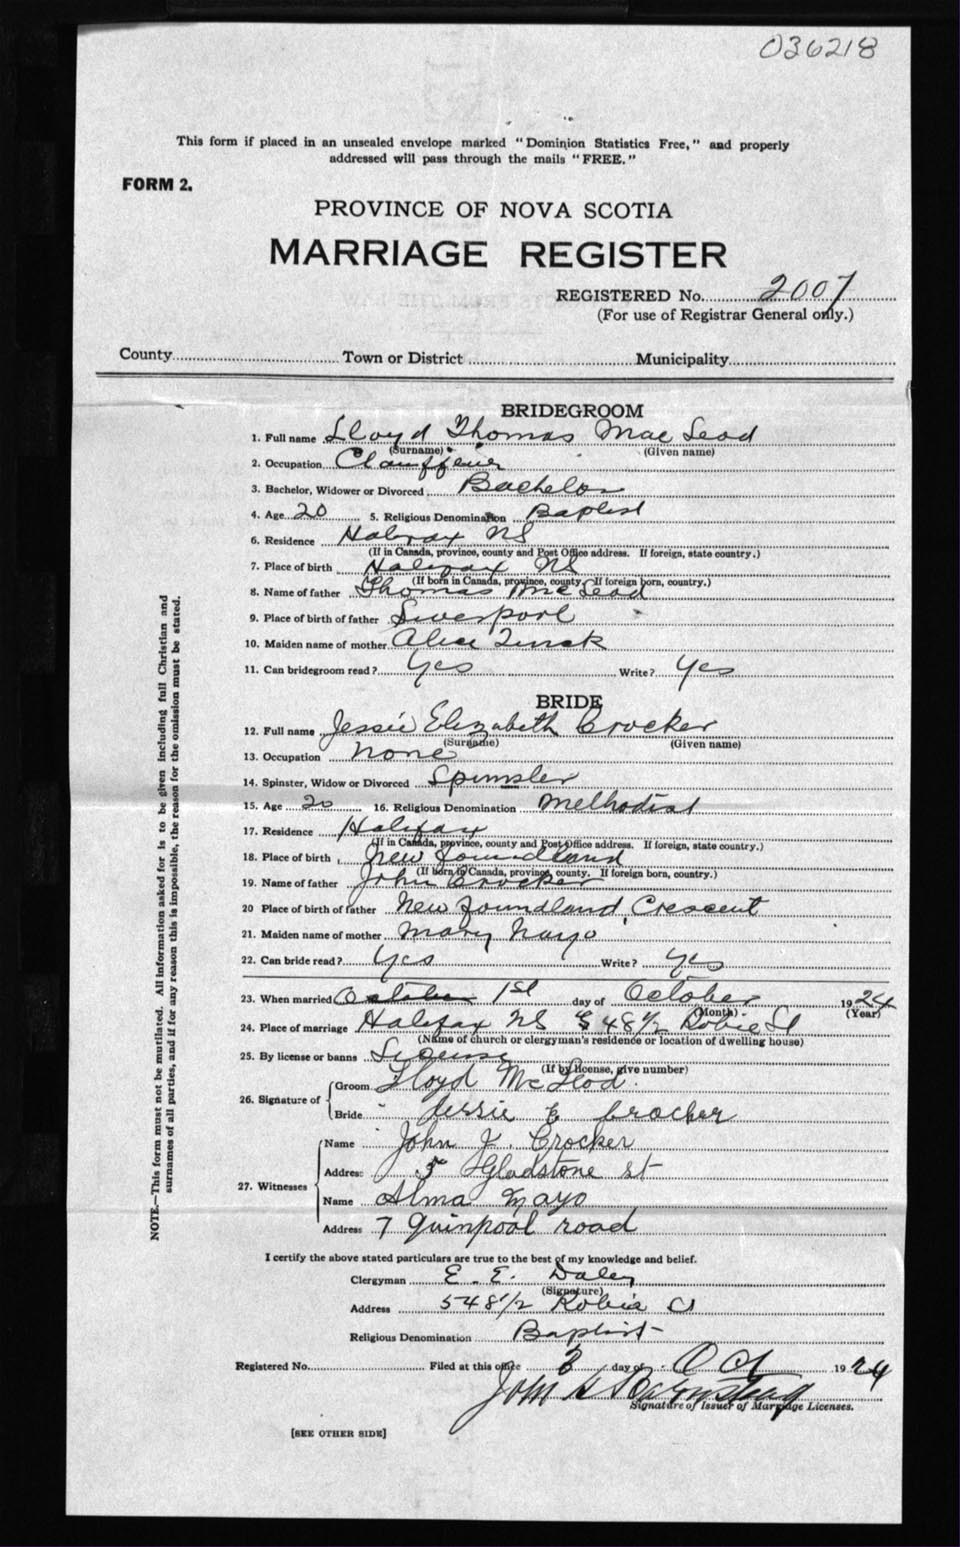 036218
This form if placed in an unsealed envelope marked "Dominion Statistics Free," and properly
addressed will pass through the mails "FREE."
FORM 2.
PROVINCE OF NOVA SCOTIA
MARRIAGE REGISTER
REGISTERED No. 2007
(For use of Registrar General only.)
County Town or District Municipality
BRIDEGROOM
1. Full name Lloyd Thomas MacLeod
(Surname) (Given name)
2. Occupation Chauffeur
3. Bachelor, Widower or Divorced Bachelor
4. Age 20 5. Religious Denomination Baptist
6. Residence Halifax NS
(If in Canada, province, county and Post Office address. If foreign, state country.)
7. Place of birth Halifax NS
(If born in Canada, province, county. If foreign born, country.)
8. Name of father Thomas McLeod
9. Place of birth of father Liverpool
10. Maiden name of mother Alice Zinck
11. Can bridegroom read? Yes Write? Yes
BRIDE
12. Full name Jessie Elizabeth Crocker
(Surname) (Given name)
13. Occupation None
14. Spinster, Widow or Divorced Spinster
15. Age 20 16. Religious Denomination Methodist
17. Residence Halifax
(If in Canada, province, county and Post Office address. If foreign, state country.)
18. Place of birth New Foundland
(If born in Canada, province, county. If foreign born, country.)
19. Name of father John Crocker
20 Place of birth of father New Foundland, Crescent
21. Maiden name of mother Mary
22. Can bride read? Yes Write? Yes
23. When married October 1st day of October 1924
(Month) (Year)
24. Place of marriage Halifax NS 548 1/2 Robie St
(Name of church or clergyman's residence or location of dwelling house)
25. By license or banns License
(If by license, give number)
26. Signature of
Groom Lloyd McLeod.
Bride Jessie E Crocker
27. Witnesses
Name John J. Crocker
Address 5 Gladstone st
Name Alma Mayo
Address 7 Quinpool road
I certify the above stated particulars are true to the best of my knowledge and belief.
Clergyman E. E. Daley
(Signature)
Address 548 1/2 Robie St
Religious Denomination Baptist
Registered No. Filed at this office day of Oct 1924
John
Signature of Issuer of Marriage Licenses.
[SEE OTHER SIDE]
NOTE.—This form must not be mutilated. All information asked for is to be given including full Christian and
surnames of all parties, and if for any reason this is impossible, the reason for the omission must be stated.